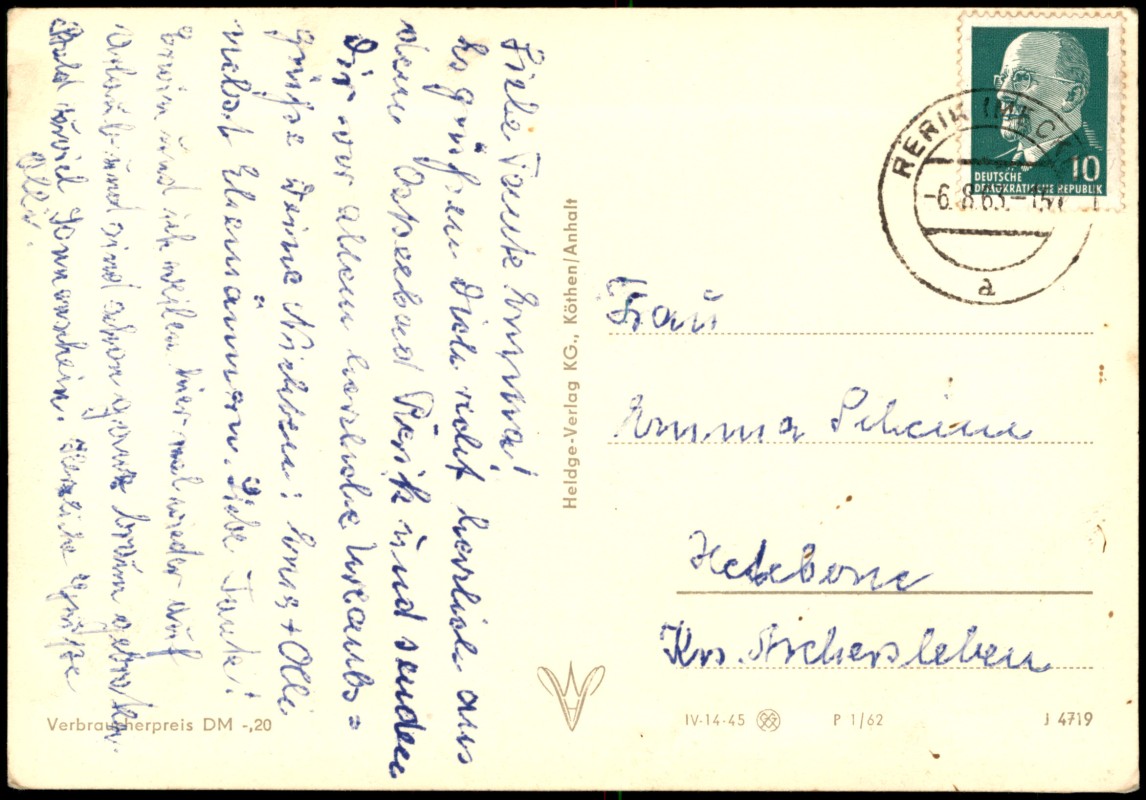 Liebe Tante Emma!
Es grüßen Dich recht herzlich aus
dem Ostseebad Rerik und senden
Dir vor allem herzliche Urlaubs=
grüße Deine Nichten: Erna + Olli
nebst Ehemänner. Liebe Tante!
Erwin und ich weilen hier mal wieder auf
Urlaub und sind schon ganz braun gebra
Bald soviel Sonnenschein. Herzliche Grüße
Olli.
Verbraucherpreis DM -,20
Heldge-Verlag KG., Köthen/Anhalt
10
DEUTSCHE
DEMOKRATISCHE REPUBLIK
RERIK (MECKL
-6.8.63.-15
a
Frau
Emma Scheine
Hedeborn
Krs. Aschersleben
IV-14-45 P 1/62 J 4719